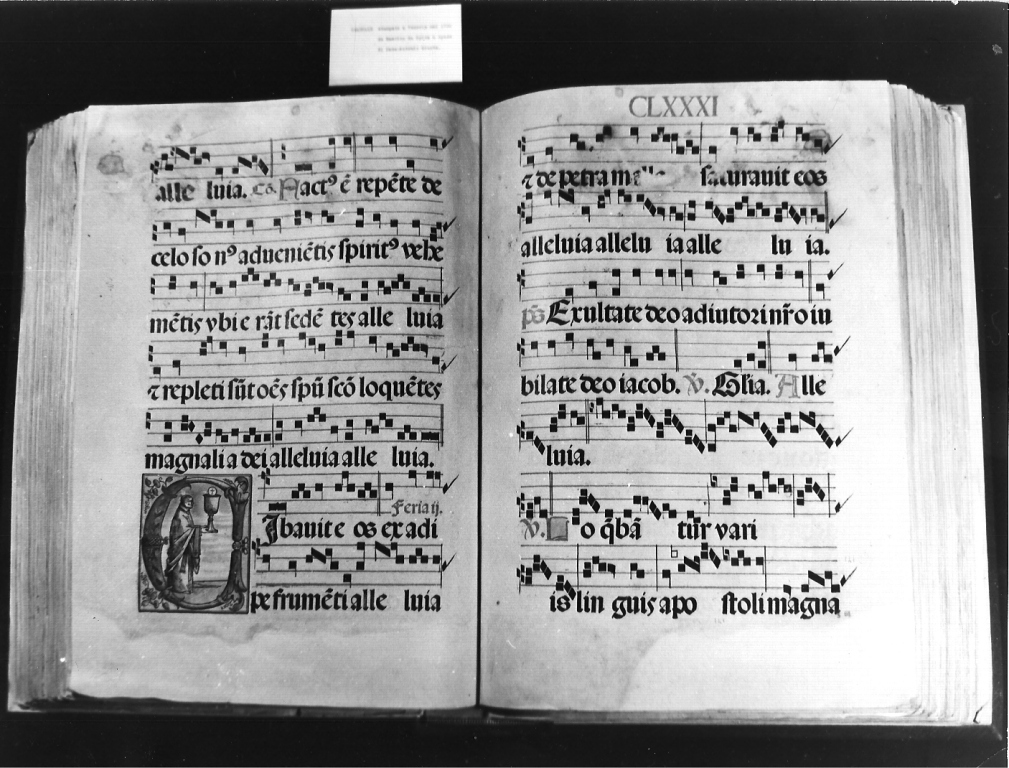 alle luia. Cō. Fact⁹ ē repēte de
celo so n⁹ adueniētis spirit⁹ vehe
mētis vbi e rāt sedē tes alle luia
⁊ repleti sūt oēs spū scō loquētes
magnalia dei alleluia alle luia.
Feria ij.
Cibauit e os ex adi
pe frumēti alle luia
CLXXXI
⁊ de petra me saturauit eos
alleluia allelu ia alle lu ia.
p̄s Exultate deo adiutori nr̄o iu
bilate deo iacob. V. Glia. Alle
luia.
V. Lo q̄bā tur vari
is lin guis apo stoli magna